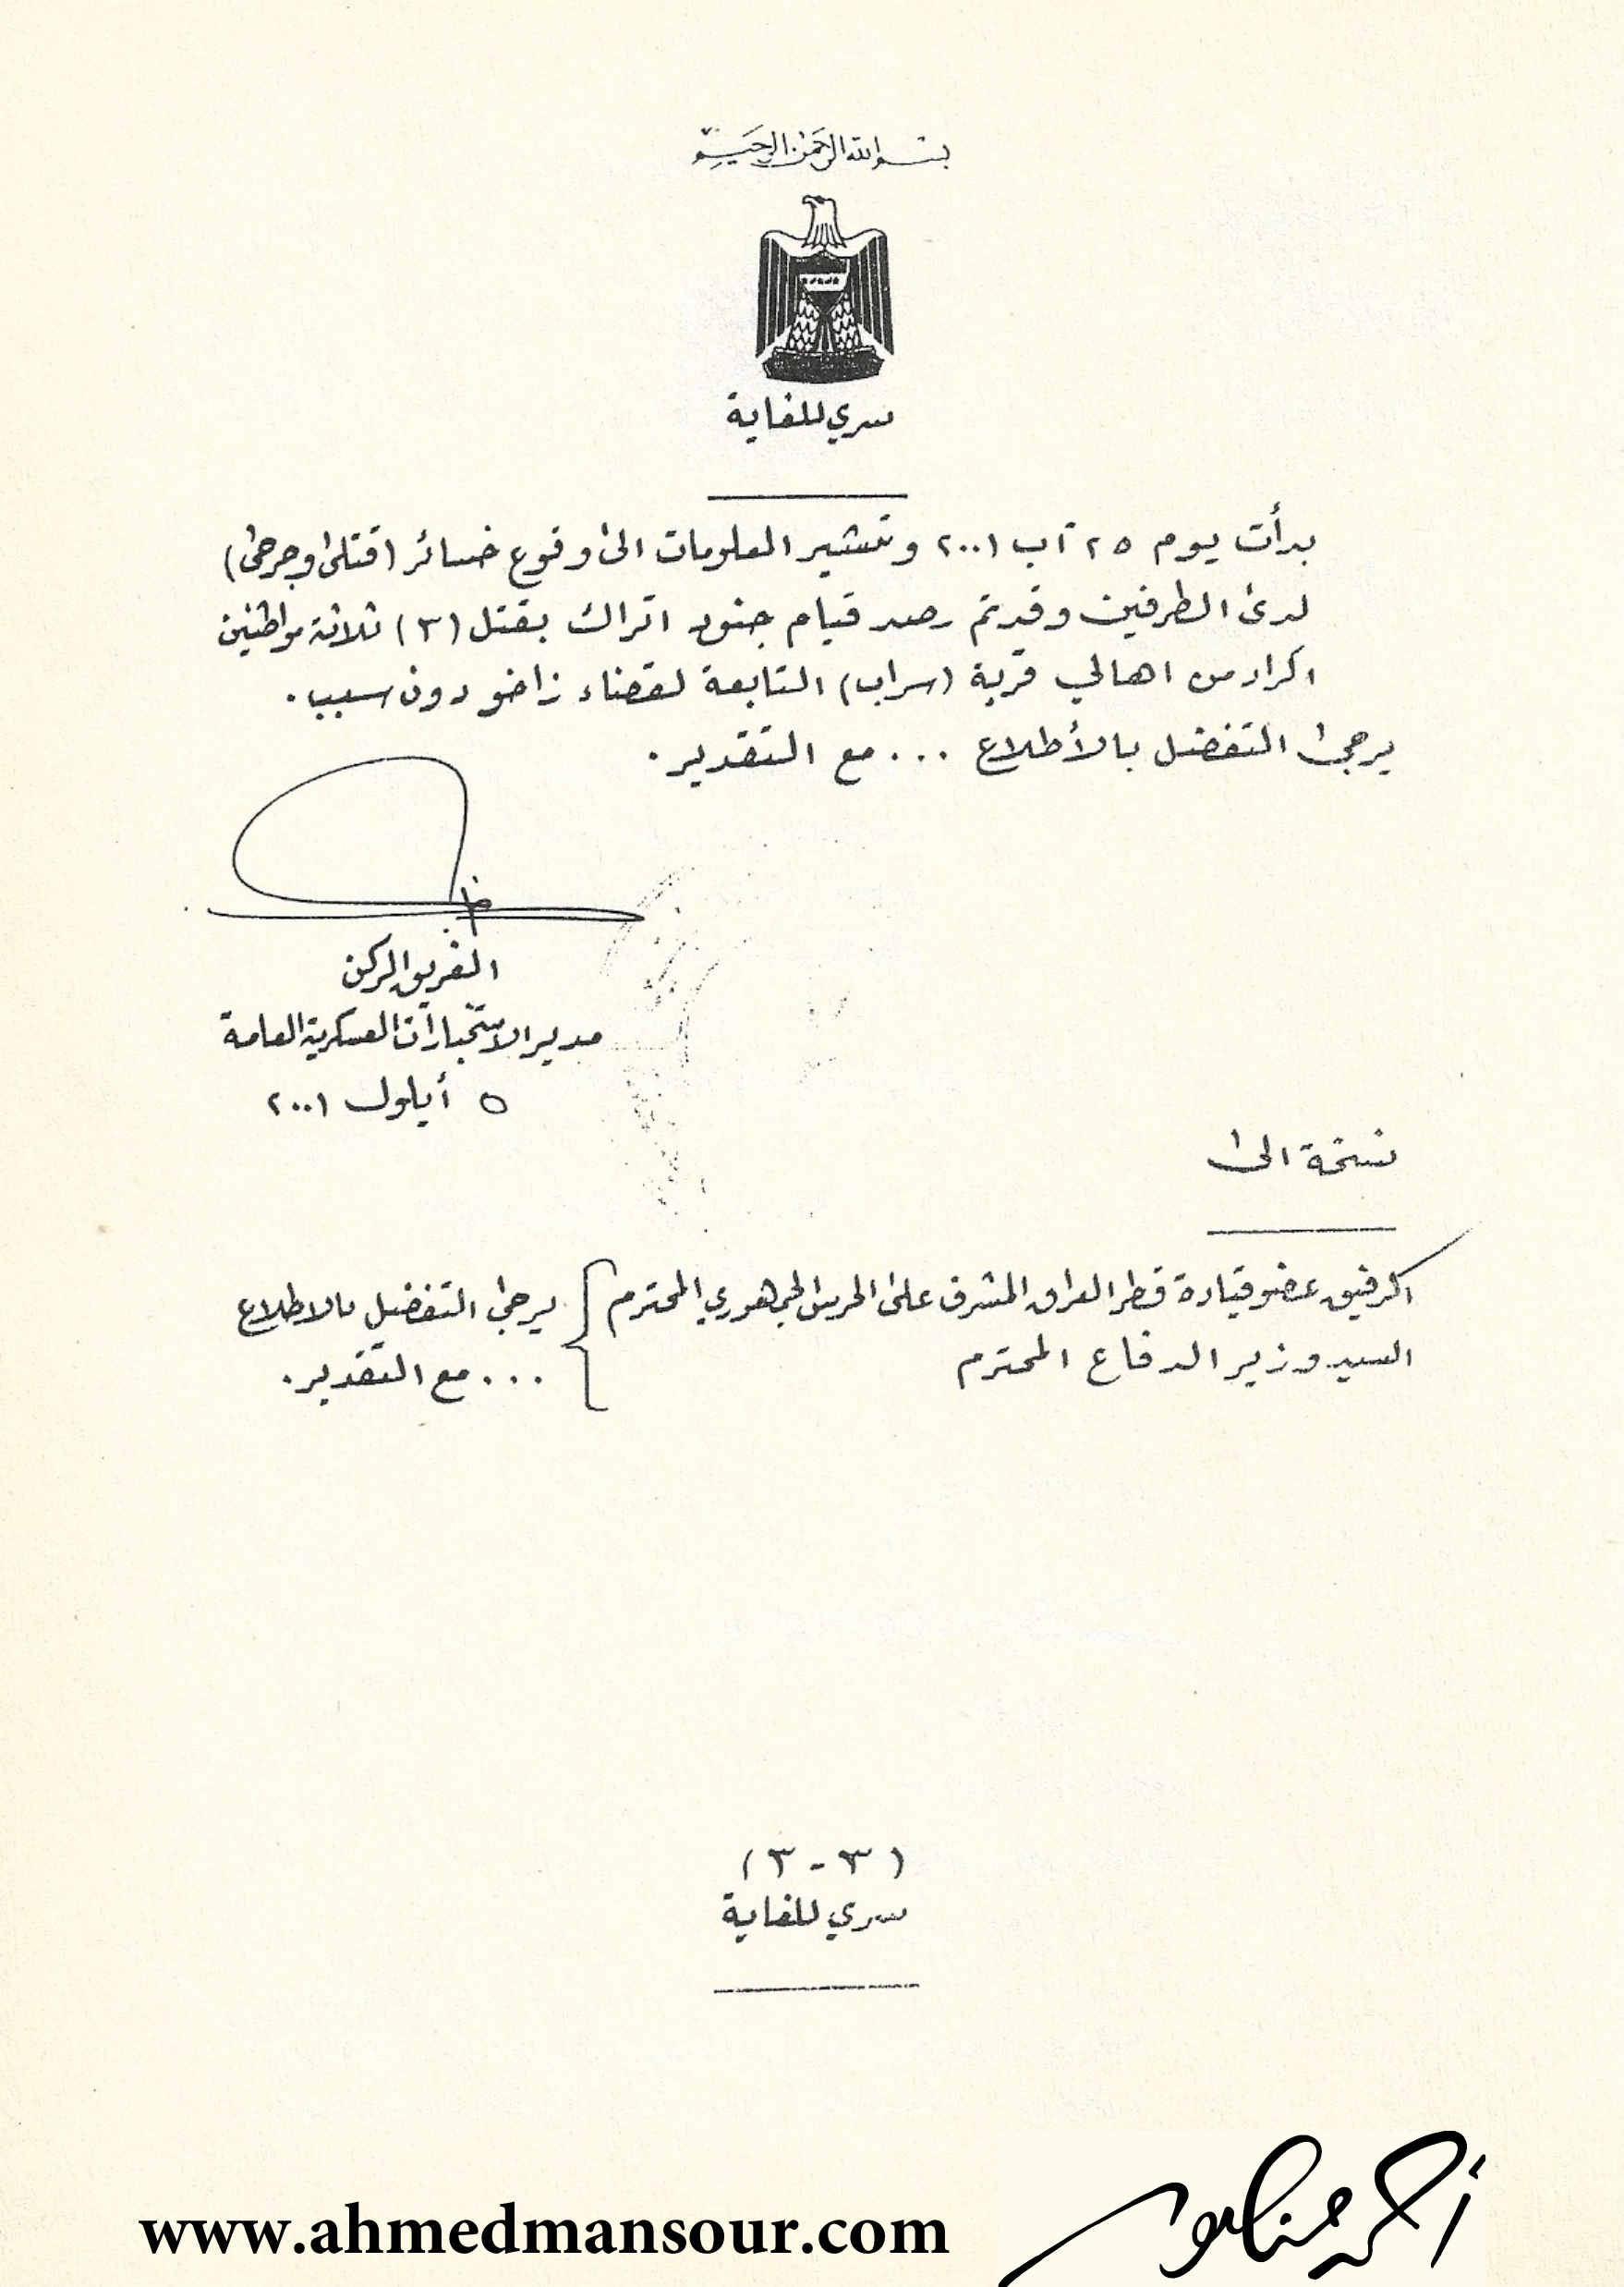 بسم الله الرحمن الرحيم
سري للغاية
بدأت يوم ٢٥ آب ٢٠٠١ وتشير المعلومات الى وقوع خسائر (قتلى وجرحى)
لدى الطرفين وقد تم رصد قيام جنود اتراك بقتل (٣) ثلاثة مواطنين
اكراد من اهالي قرية (سراب) التابعة لقضاء زاخو دون سبب.
يرجى التفضل بالأطلاع ... مع التقدير.
الفريق الركن
مدير الاستخبارات العسكرية العامة
٥ أيلول ٢٠٠١
نسخة الى
الرفيق عضو قيادة قطر العراق المشرف على الحرس الجمهوري المحترم } يرجى التفضل بالاطلاع
السيد وزير الدفاع المحترم ... مع التقدير.
(٣ - ٣)
سري للغاية
www.ahmedmansour.com
أحمد منصور